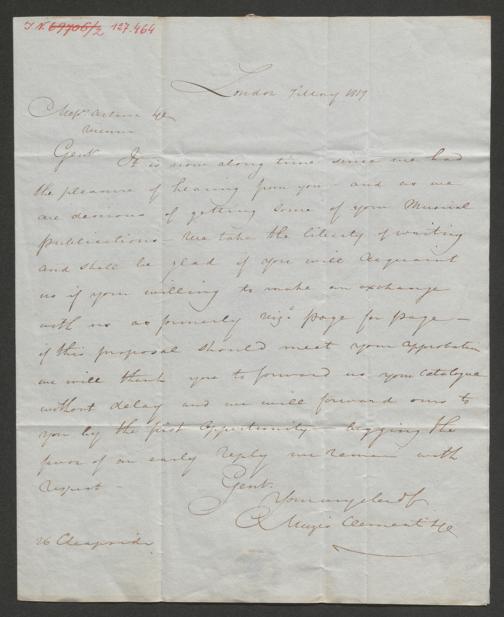 I.N. 69706/2 127.464
London 7 May 1819
Messrs Artaria &Co
Vienna
Gent. It is now along time since we had
the pleasure of hearing from you and as we
are desirous of getting some of your Musical
publications We take the liberty of writing
and shall be glad if you will acquaint
us if your willing to make an exchange
with us as formerly Vizt page for page —
if this proposal should meet your approbation
we will thank you to forward us your Catalogue
without delay and we will forward ours to
you by the first opportunity — begging the
favor of an early reply we remain with
respect —
Gent.
Muzio Clementi &Co
26 Cheapside